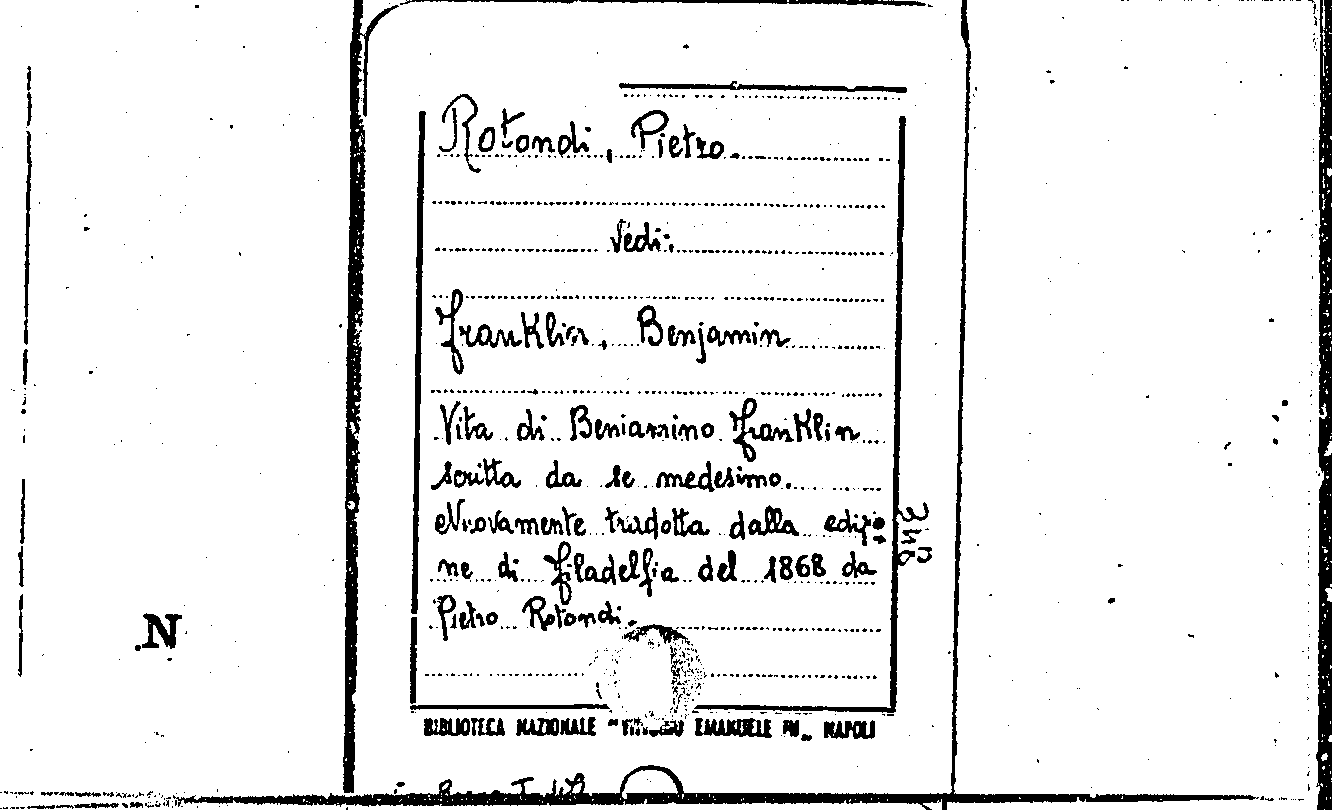 Rotondi, Pietro.
Vedi:
Franklin, Benjamin
Vita di Beniamino Franklin
scritta da se medesimo.
Nuovamente tradotta dalla edizio
ne di Filadelfia del 1868 da
Pietro Rotondi.
N
BIBLIOTECA NAZIONALE "VITTORIO EMANUELE III" NAPOLI